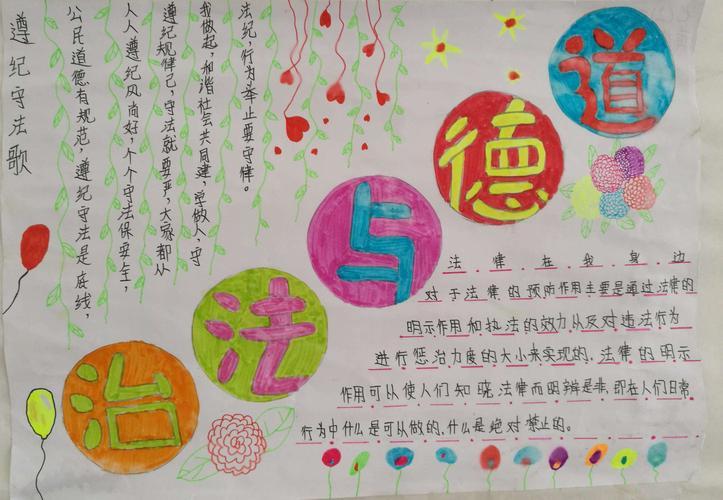 道德与法治
遵纪守法歌
公民道德有规范，遵纪守法是底线，
人人遵纪风尚好，个个守法保安全，
遵纪规律己，守法就要严，大家都从
我做起，和谐社会共同建，学做人，守
法纪，行为举止要守律。
法律在我身边
对于法律的预防作用主要是通过法律的
明示作用和执法的效力从反对违法行为
进行惩治力度的大小来实现的，法律的明示
作用可以使人们知晓法律而明辨是非，即在人们日常
行为中什么是可以做的，什么是绝对禁止的。